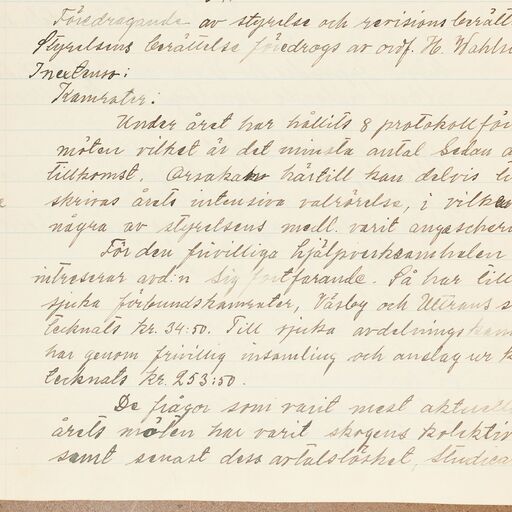 Föredragande av styrelse och revisionsberätt
Styrelsens berättelse föredrogs av ordf. H. Wahls
In extenso:
Kamrater:
Under året har hållits 8 protokollför
möten vilket är det minsta antal sedan a
tillkomst. Orsaken härtill kan delvis
skrivas årets intensiva valrörelse, i vilken
några av styrelsens medl. varit
För den frivilliga hjälpverksamheten
intreserar avd:n sig fortfarande. Så har till
sjuka förbundskamrater, Väsby och Ultrans
tecknats kr. 34:50. Till sjuka avdelningskam
har genom frivillig insamling och anslag ur k
tecknats kr. 253:50.
De frågor som varit mest aktuell
årets möten har varit skogens kolektiv
samt senast dess avtalslöshet, studiea